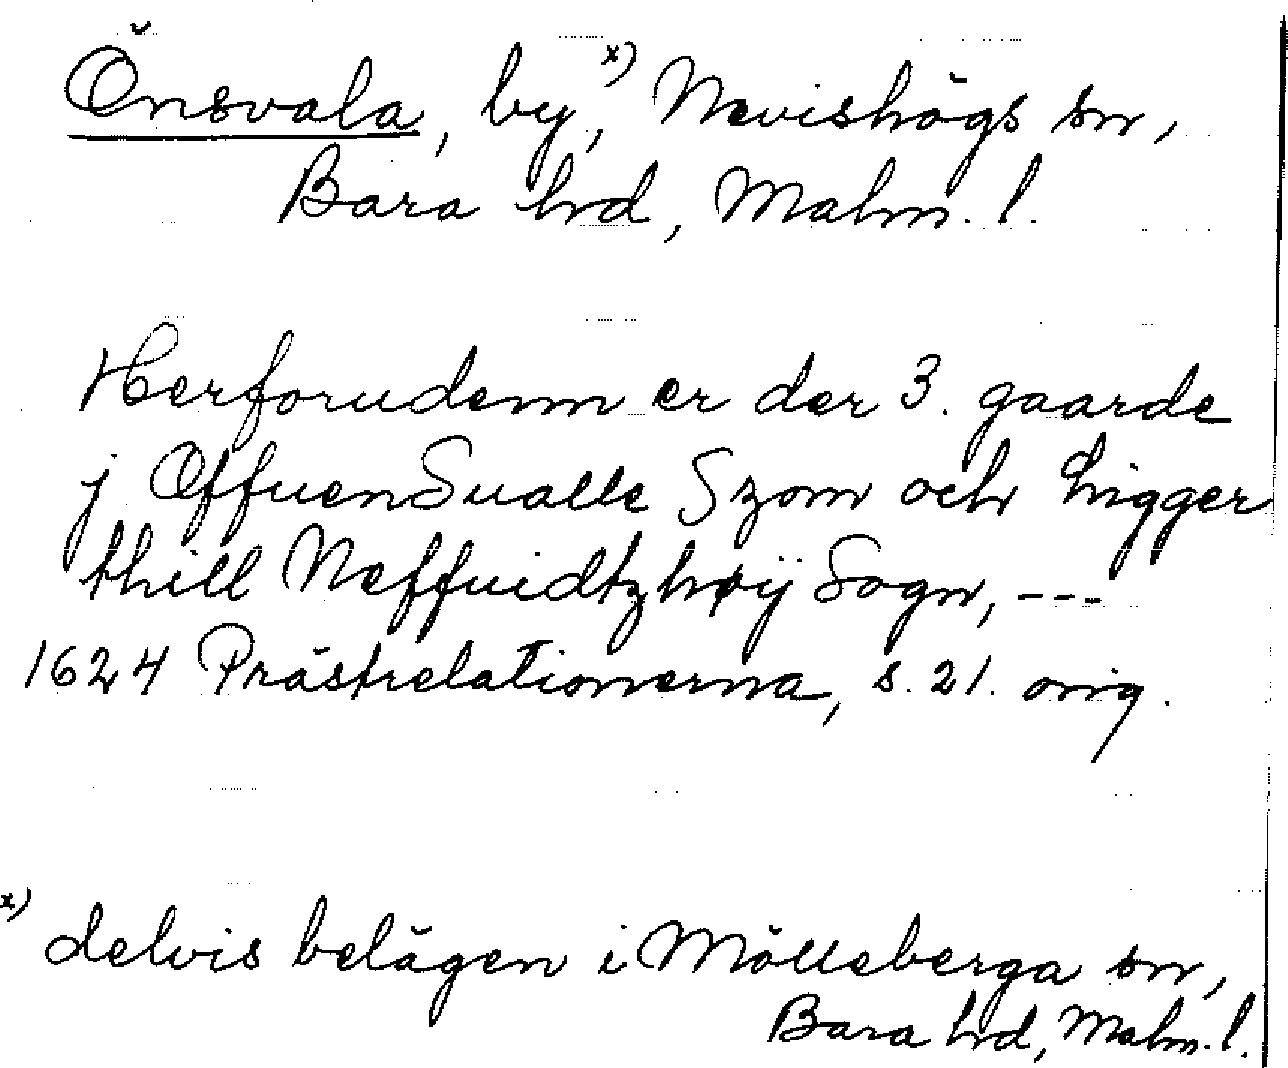 Önsvala, by,x) Nevishögs sn,
Bara hrd, Malm. l.
Herforudenn er der 3. gaarde
j OffuenSualle Szom och ligger
thill Neffuidtzhøÿ Sogn, ---
1624 Prästrelationerna, s. 21. orig.
x) delvis belägen i Mölleberga sn,
Bara hrd, Malm. l.